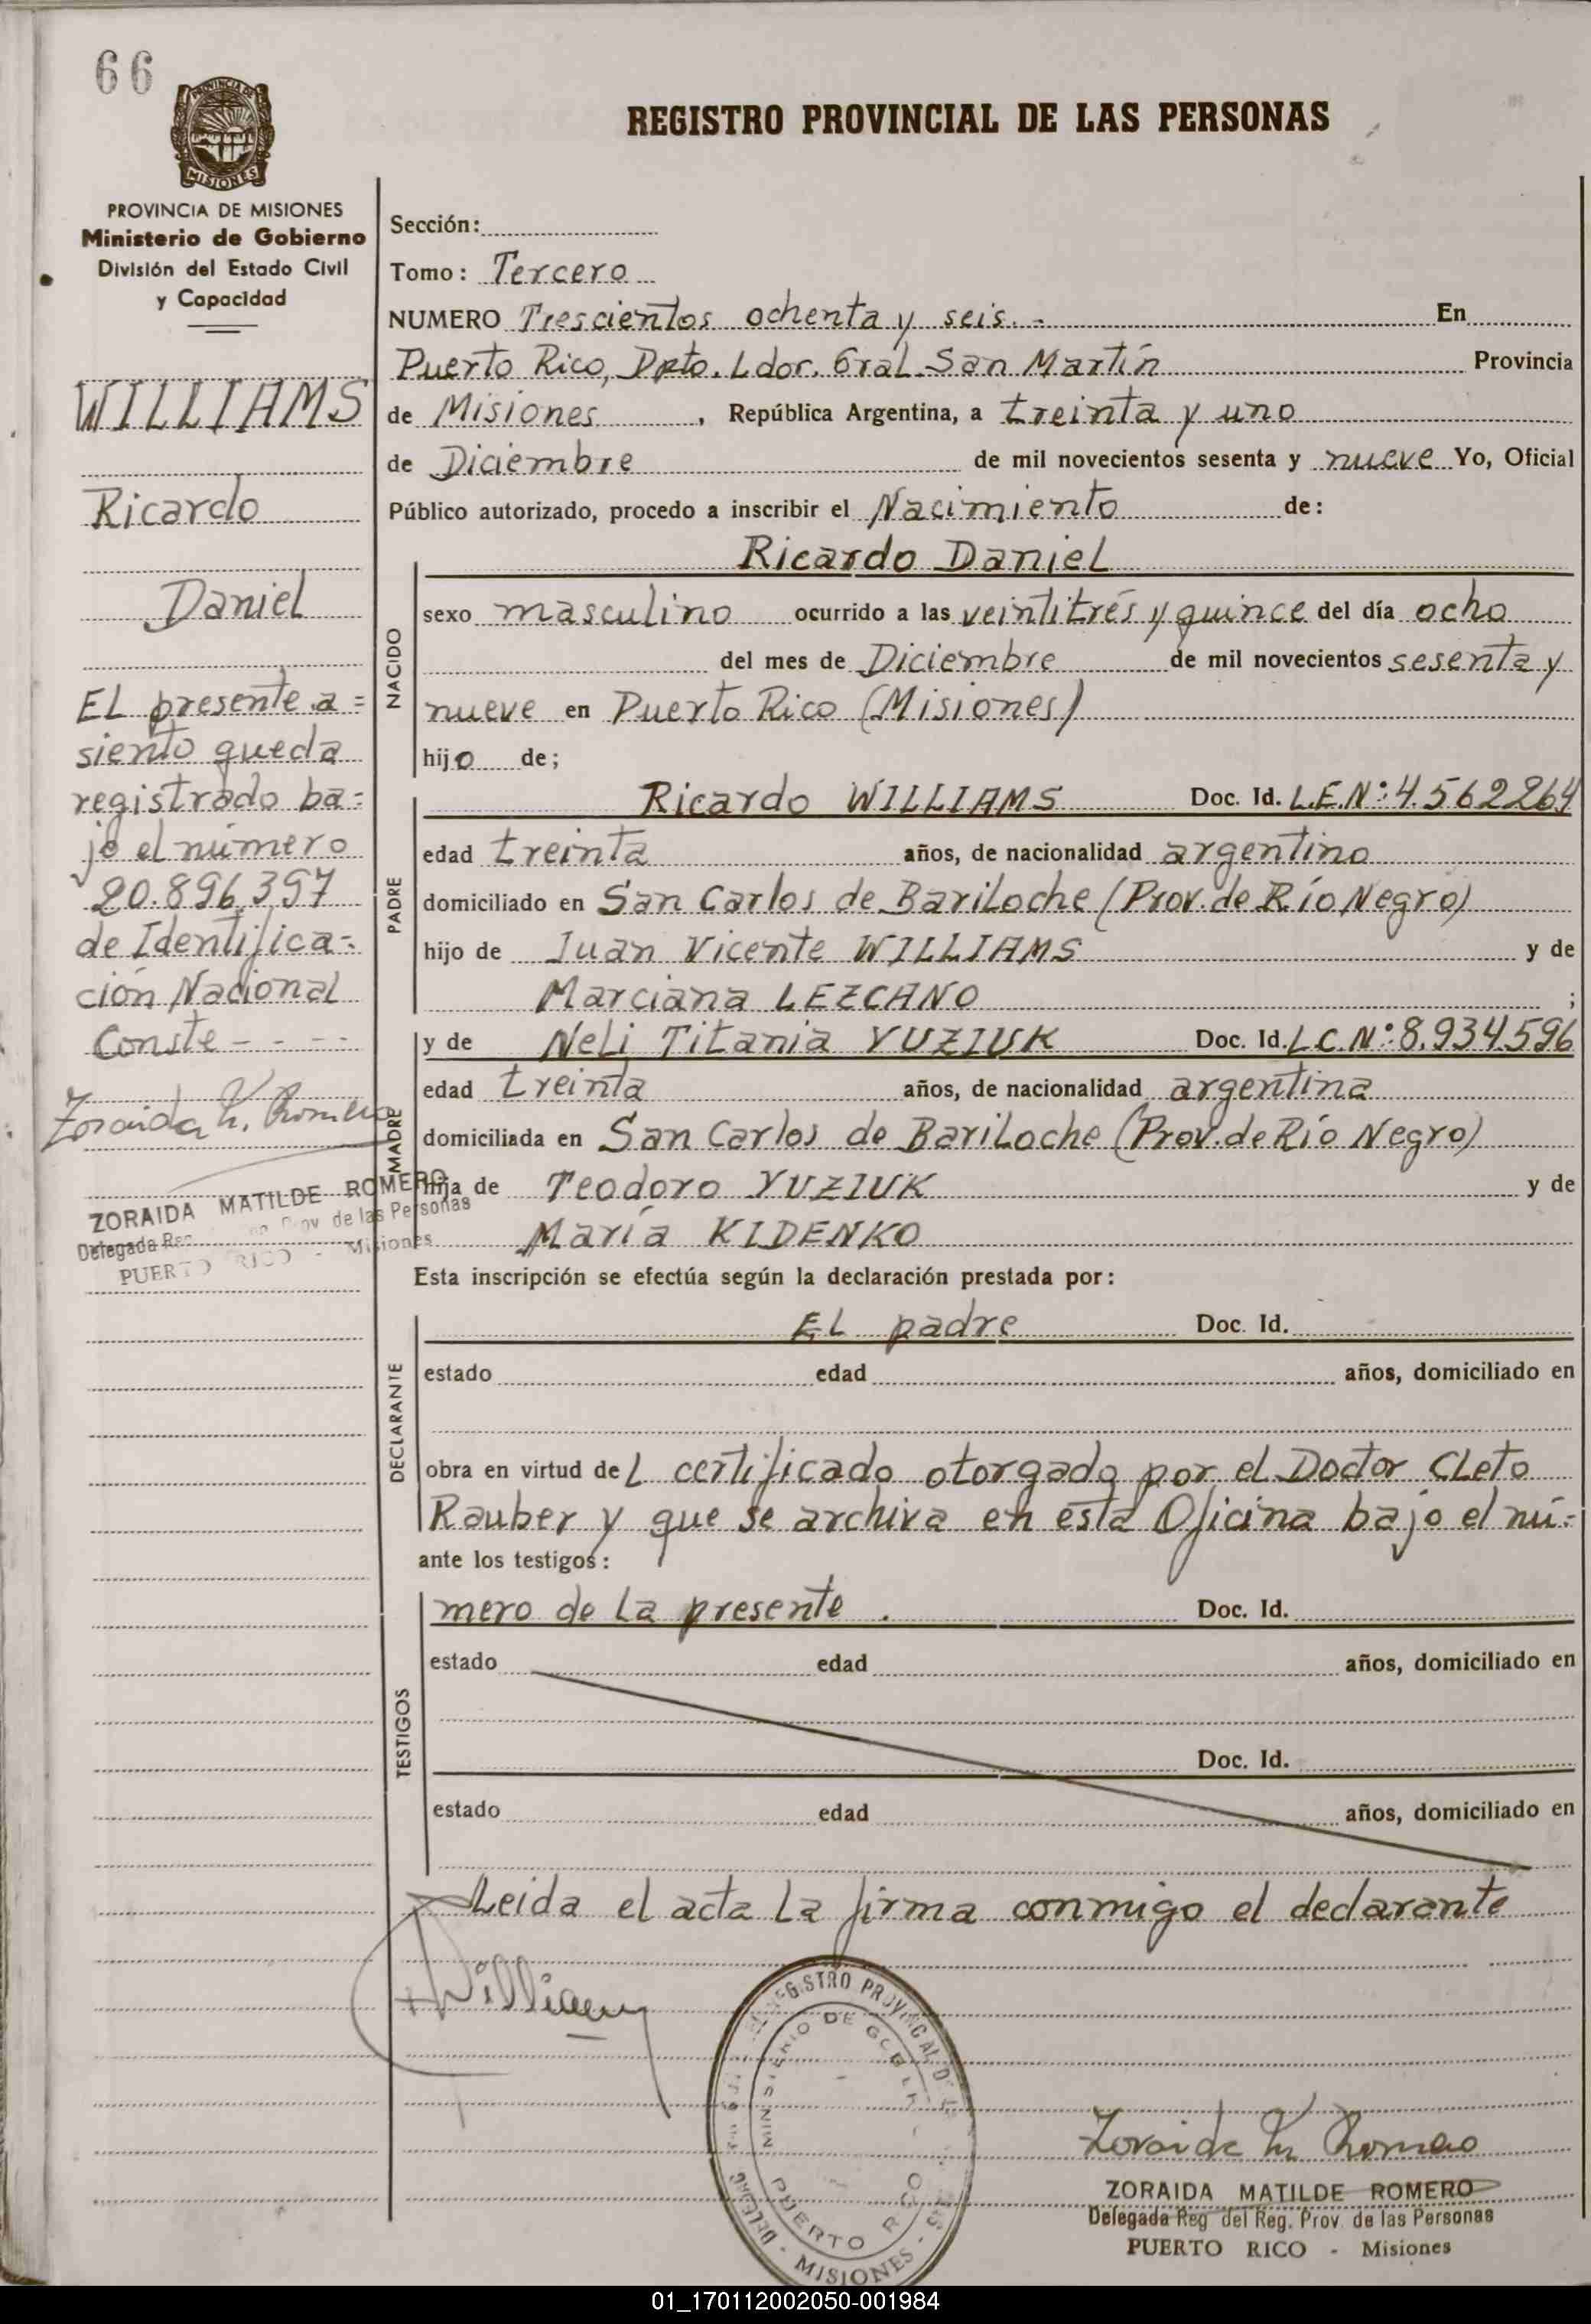 66
PROVINCIA DE
MISIONES
REGISTRO PROVINCIAL DE LAS PERSONAS
PROVINCIA DE MISIONES
Ministerio de Gobierno
División del Estado Civil
y Capacidad
WILLIAMS
Ricardo
Daniel
El presente a=
siento queda
registrado ba=
jo el número
20.896.397
de Identifica=
ción Nacional
Conste - - - -
Zoraida M. Romero
ZORAIDA MATILDE ROMERO
Delegada Reg Prov de las Personas
PUERTO RICO - Misiones
Sección:
Tomo: Tercero
NUMERO Trescientos ochenta y seis. - En
Puerto Rico, Dpto. Ldor. Gral. San Martín Provincia
de Misiones, República Argentina, a treinta y uno
de Diciembre de mil novecientos sesenta y nueve Yo, Oficial
Público autorizado, procedo a inscribir el Nacimiento de:
Ricardo Daniel
NACIDO
sexo masculino ocurrido a las veintitrés y quince del día ocho
del mes de Diciembre de mil novecientos sesenta y
nueve en Puerto Rico (Misiones)
hijo de;
PADRE
Ricardo WILLIAMS Doc. Id. L.E.Nº: 4.562264
edad treinta años, de nacionalidad argentino
domiciliado en San Carlos de Bariloche (Prov. de Río Negro)
hijo de Juan Vicente WILLIAMS y de
Marciana LEZCANO ;
MADRE
y de Neli Titania YUZIUK Doc. Id. L.C.Nº: 8.934.596
edad treinta años, de nacionalidad argentina
domiciliada en San Carlos de Bariloche (Prov. de Río Negro)
hija de Teodoro YUZIUK y de
María KIDENKO
Esta inscripción se efectúa según la declaración prestada por:
DECLARANTE
El padre Doc. Id.
estado edad años, domiciliado en
obra en virtud del certificado otorgado por el Doctor Cleto
Rauber y que se archiva en esta Oficina bajo el nú=
ante los testigos:
TESTIGOS
mero de la presente . Doc. Id.
estado edad años, domiciliado en
Doc. Id.
estado edad años, domiciliado en
Leida el acta la firma conmigo el declarante
Williams
REGISTRO PROVINCIAL DE LAS
MINISTERIO DE GOBIERNO
PUERTO RICO
MISIONES
Zoraida M. Romero
ZORAIDA MATILDE ROMERO
Delegada Reg del Reg. Prov. de las Personas
PUERTO RICO - Misiones
01_170112002050-001984